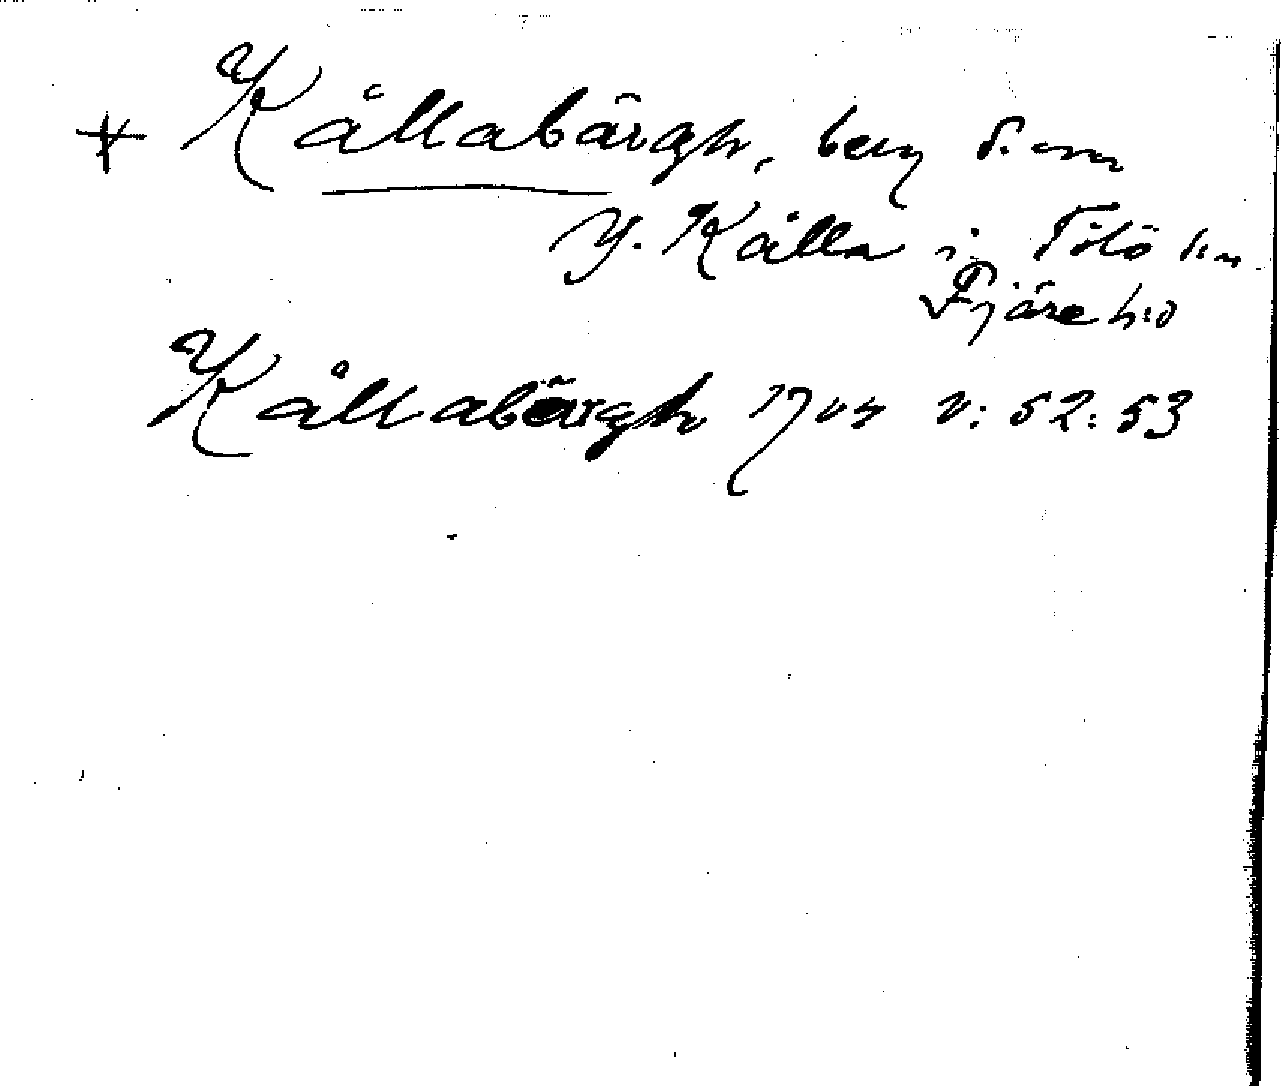 * Kållabärgh, berg S. om
Y. Kålla i Tölö sn
Fjäre hd
Kållabärgh 1704 V: 52: 53